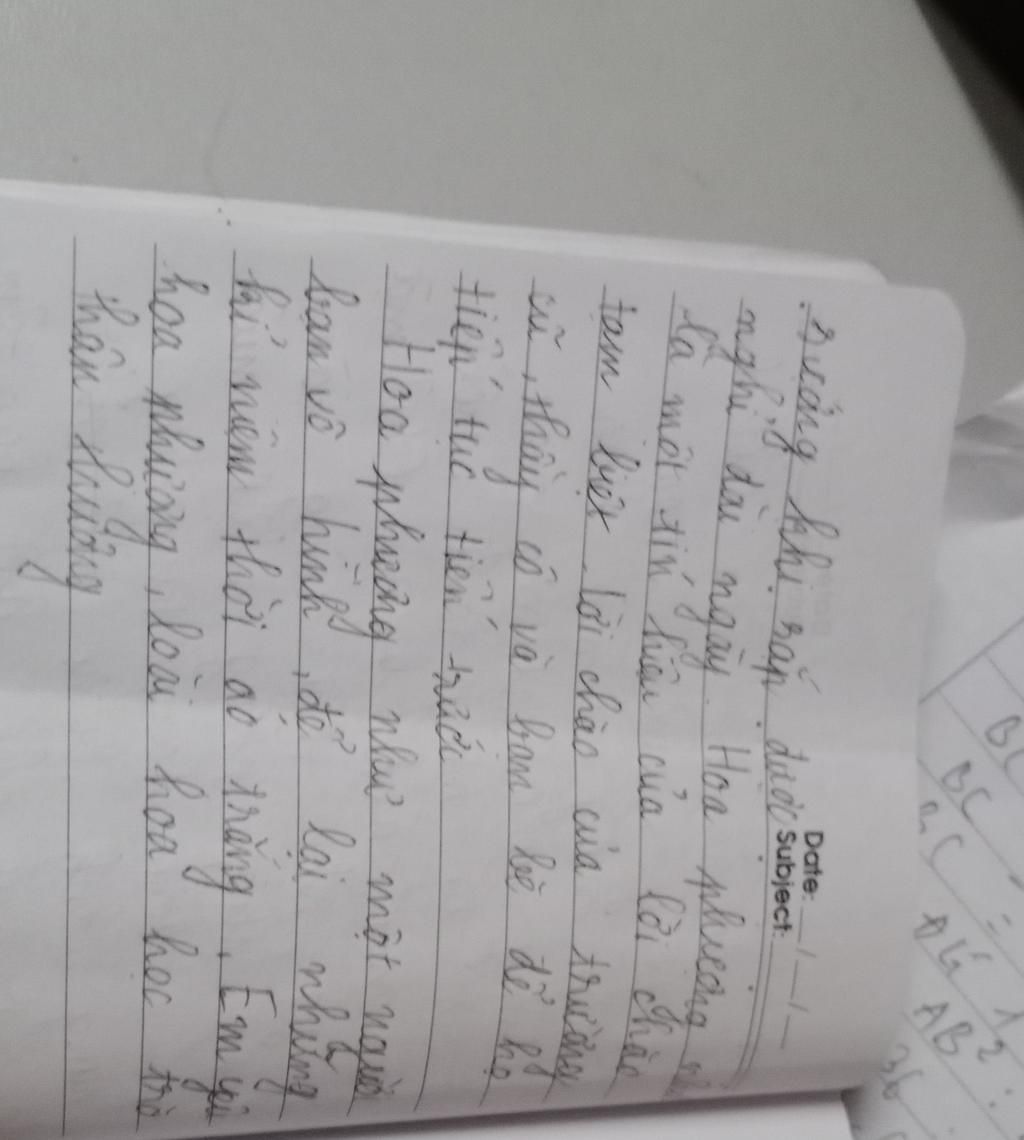 Date: / /
Subject:
sướng khi sắp được
nghỉ dài ngày. Hoa phượng
là một tín hiệu của lời chào
tạm biệt. lời chào của trường
cũ, thầy cô và bạn bè để họ
tiếp tục tiến trước
Hoa phượng như một người
bạn vô hình, để lại những
kỉ niệm thời áo trắng. Em yêu
hoa phượng, loài hoa học trò
thân thương
BC
BC
=
AB²